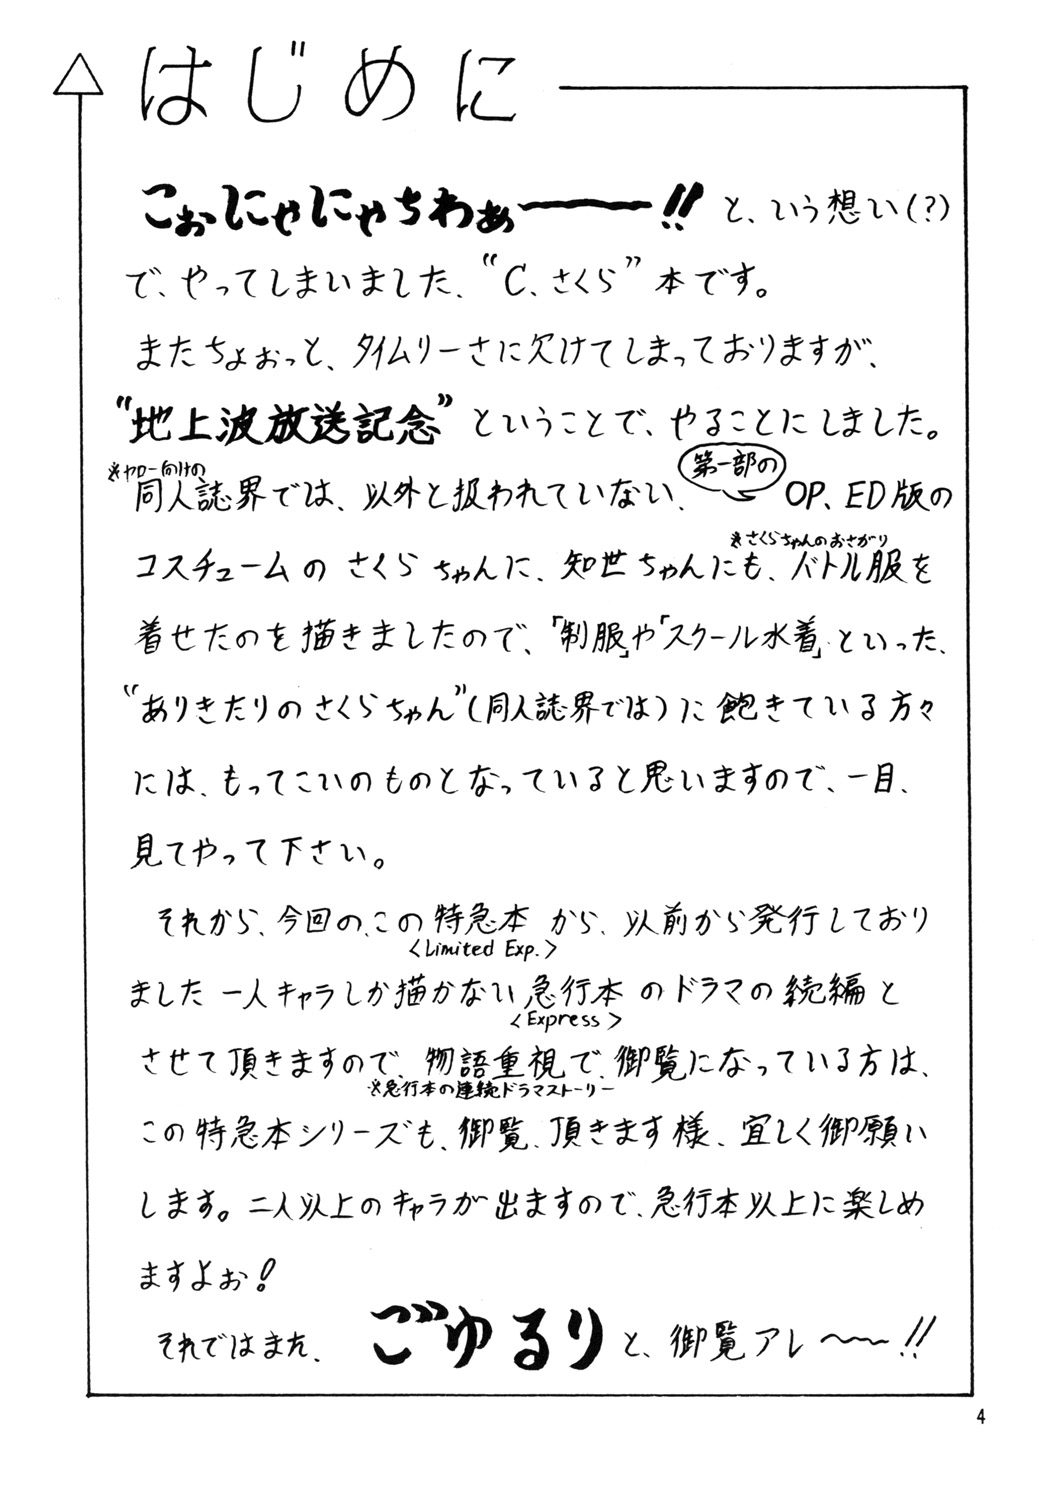 はじめに
こぉにゃにゃちわぁ――!! と、いう想い(?)
で、やってしまいました、“C、さくら”本です。
またちょぉっと、タイムリーさに欠けてしまっておりますが、
“地上波放送記念”ということで、やることにしました。
※ヤロー向けの
第一部の
同人誌界では、以外と扱われていない、OP、ED版の
※さくらちゃんのおさがり
コスチュームのさくらちゃんに、知世ちゃんにも、バトル服を
着せたのを描きましたので、「制服」や「スクール水着」といった、
“ありきたりのさくらちゃん”(同人誌界では)に飽きている方々
には、もってこいのものとなっていると思いますので、一目、
見てやって下さい。
それから、今回の、この特急本から、以前から発行しており
<Limited Exp.>
ました一人キャラしか描かない急行本のドラマの続編と
<Express>
させて頂きますので、物語重視で、御覧になっている方は、
※急行本の連続ドラマストーリー
この特急本シリーズも、御覧、頂きます様、宜しく御願い
します。二人以上のキャラが出ますので、急行本以上に楽しめ
ますよぉ!
それではまた、ごゆるりと、御覧アレ〜〜!!
4